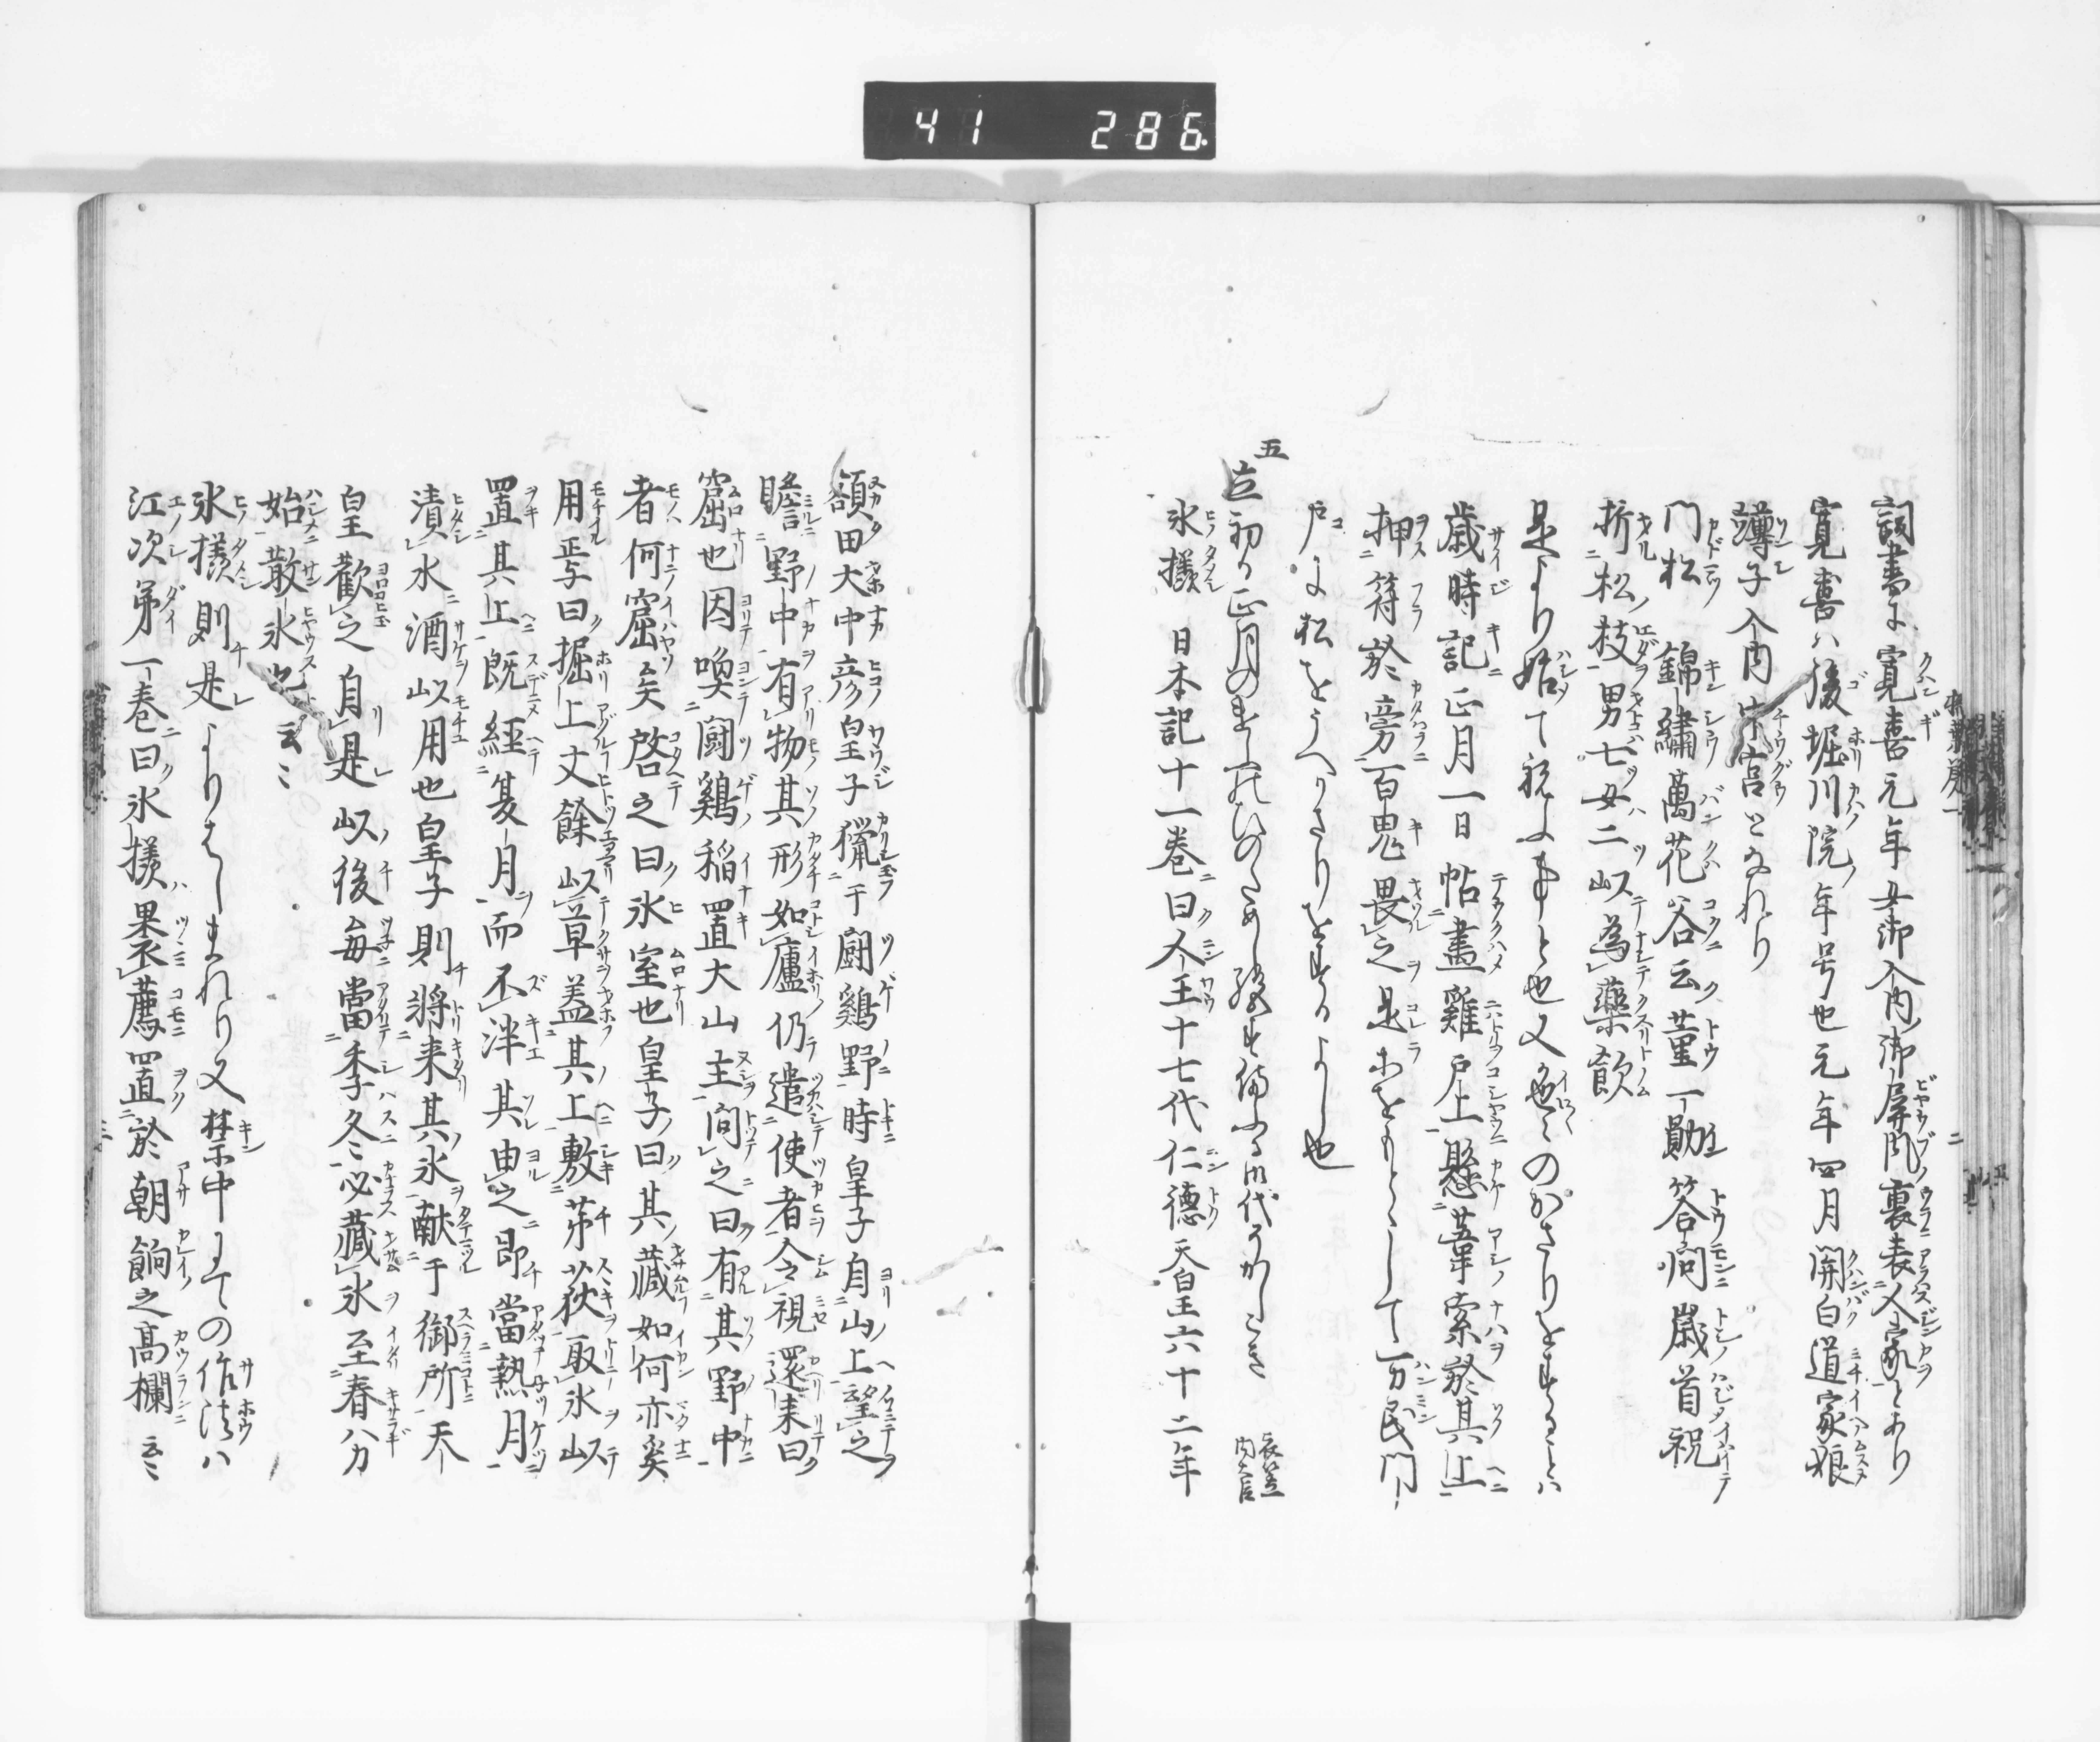 41 286
詞書に寛喜元年女御入内御屏風裏表人家とあり
寛喜ハ後堀川院年号也元年四月関白道家娘
竴子入内中宮となれり
門松 錦繍萬花谷云董勛答問歳首祝
折松枝男七女二以為薬飲
是より始て祝ふ事と也又色〻のかさりをすることハ
歳時記正月一日帖畫雞戸上懸葦索於其上
挿符於旁百鬼畏之是ホをもととして万民門
戸に松をうへかさりをするよし也
五
立初る正月の
氷様 日本記十一巻曰人王十七代仁徳天皇六十二年
額田大中彦皇子猟于闘鶏野時皇子自山上望之
瞻野中有物其形如廬仍遣使者令視還来曰
窟也因喚闘鶏稲置大山主問之曰有其野中
者何窟矣啓之曰氷室也皇子曰其蔵如何亦奚
用焉曰掘土丈餘以草蓋其上敷茅荻取氷以
置其上既経夏月而不泮其由之即當熱月
漬水酒以用也皇子則将来其氷献于御所天
皇歓之自是以後毎當季冬必蔵氷至春分
始散氷也云〻
氷様則是よりはしまれり又禁中にての作法ハ
江次第一巻曰氷様果盛薦置於朝餉之高欄云〻